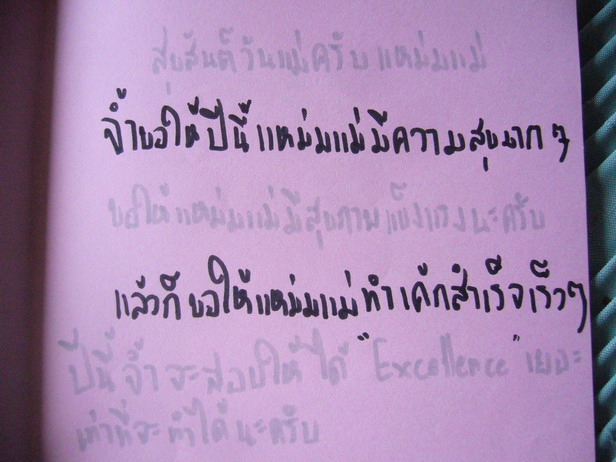 สุขสันต์วันแม่ครับแหม่มแม่
จ้ำขอให้ปีนี้แหม่มแม่มีความสุขมากๆ
ขอให้แหม่มแม่มีสุขภาพแข็งแรงนะครับ
แล้วก็ขอให้แหม่มแม่ทำเค้กสำเร็จเร็วๆ
ปีนี้จ้ำจะสอบให้ได้ "Excellence" เยอะ
เท่าที่จะทำได้นะครับ